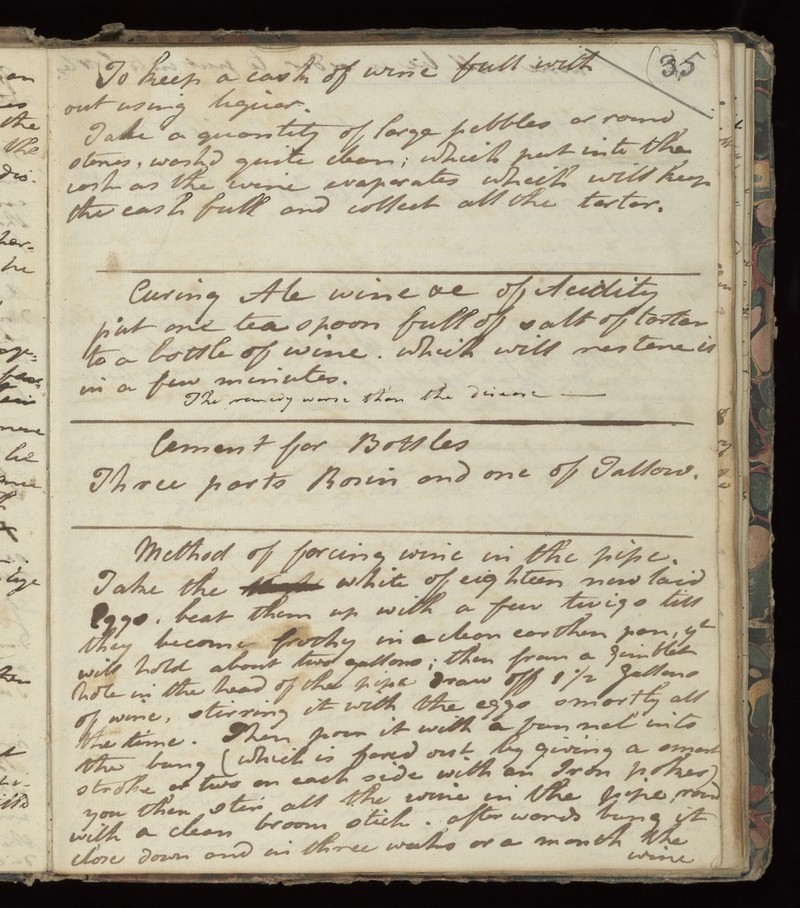 (35
To keep a cask of wine full with
out using liquor.
Take a quantity of large pebbles or round
stones, wash'd quite clean; which put into the
cask as the wine evaporates which will keep
the cask full and collect all the tartar.
Curing Ale wine &c of Acidity
put one tea spoon full of salt of tartar
to a bottle of wine. which will restore it
in a few minutes.
The remedy worse than the disease
Cement for Bottles
Three parts Rosin and one of Tallow.
Method of forcing wine in the pipe.
Take the white of eighteen new laid
Eggs. beat them up with a few twigs till
they become frothy in a clean earthen pan, yt
will hold about two gallons; then from a Gimblet
hole in the head of the pipe draw off 1 1/2 Gallons
of wine, stirring it with the eggs smartly all
the time. Then pour it with a funnel into
the bung (which is forced out by giving a smart
stroke or two on each side with an Iron poker)
you then stir all the wine in the pipe, round
with a clean broom stick. afterwards bung it
close down and in three weeks or a month the
wine